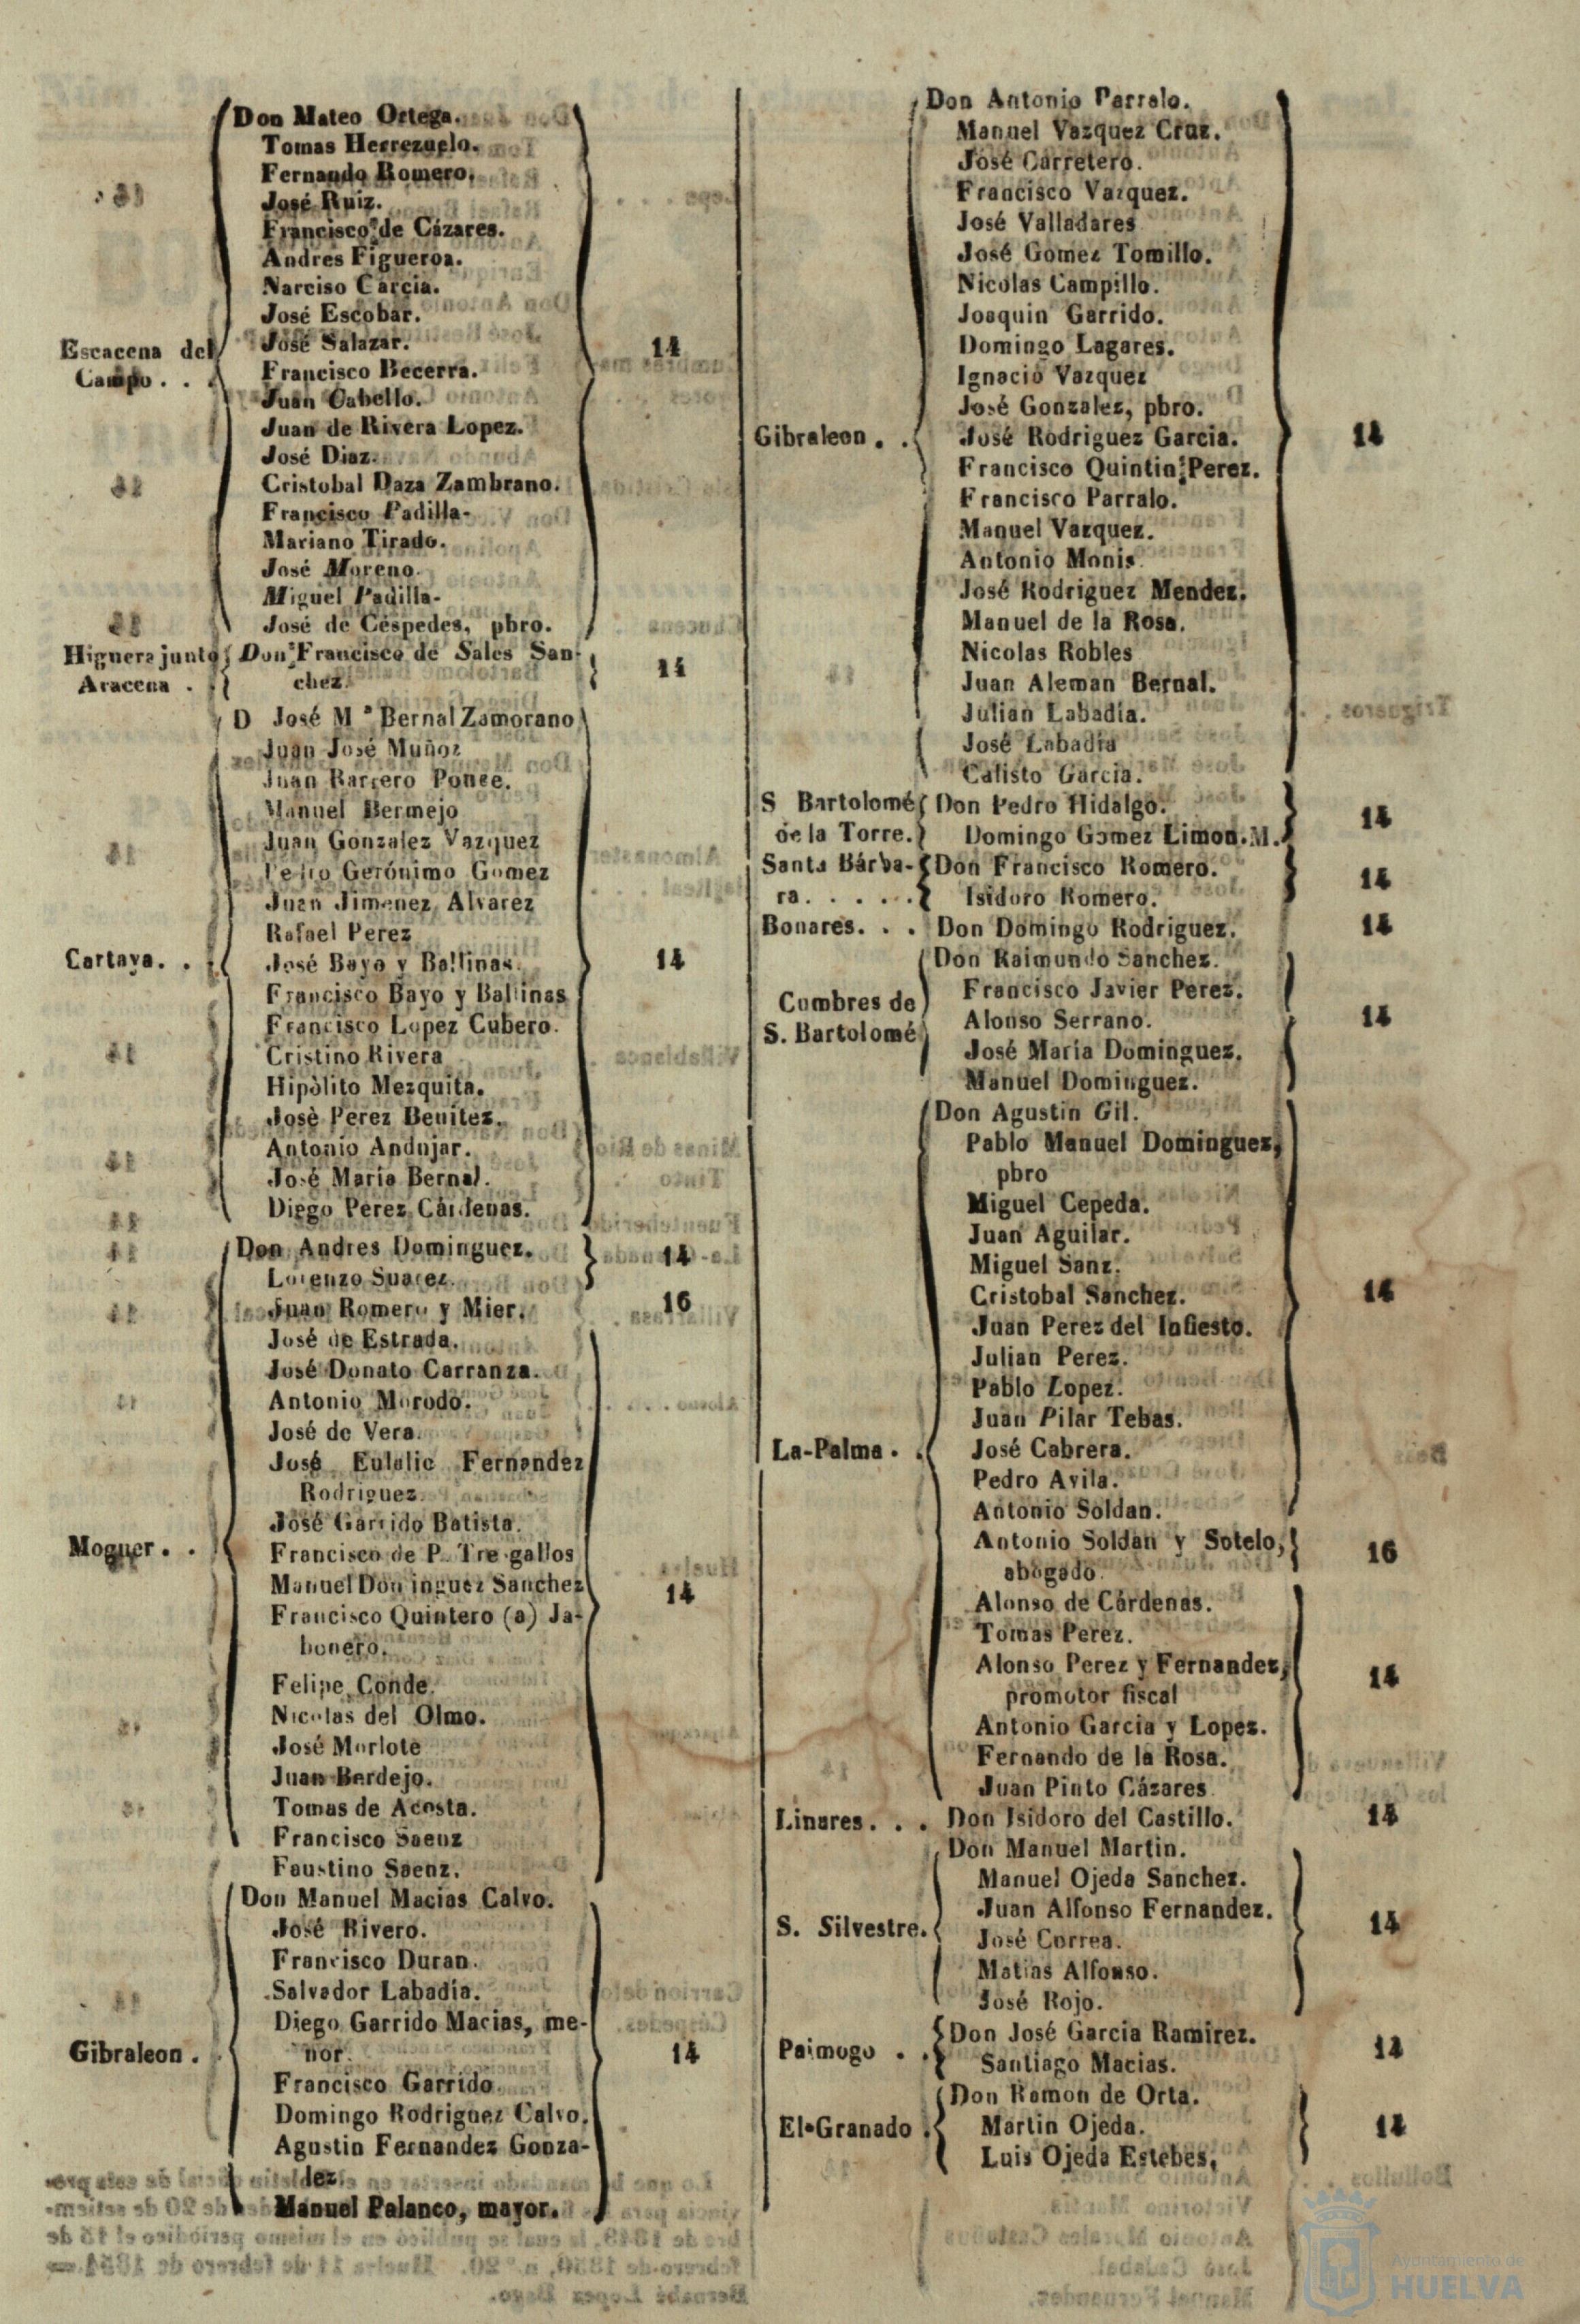 Don Mateo Ortega.
Tomas Herrezuelo.
Fernando Romero.
José Ruiz.
Francisco de Cázares.
Andres Figueroa.
Narciso Carcia.
José Escobar.
Escacena del José Salazar. 14
Campo . . Francisco Becerra.
Juan Cabello.
Juan de Rivera Lopez.
José Diaz.
Cristobal Daza Zambrano.
Francisco Padilla-
Mariano Tirado.
José Moreno.
Miguel Padilla-
José de Céspedes, pbro.
Higuera junto Don Francisco de Sales San- 14
Aracena . . chez.
D José Mª Bernal Zamorano
Juan José Muñoz
Juan Barrero Ponce.
Manuel Bermejo
Juan Gonzalez Vazquez
Pedro Gerónimo Gomez
Juan Jimenez Alvarez
Rafael Perez
Cartaya. . . José Bayo y Ballinas. 14
Francisco Bayo y Ballinas
Francisco Lopez Cubero.
Cristino Rivera
Hipòlito Mezquita.
Josè Perez Benitez.
Antonio Andujar.
José Maria Bernal.
Diego Perez Cárdenas.
Don Andres Dominguez. 14
Lorenzo Suarez.
Juan Romero y Mier. 16
José de Estrada.
José Donato Carranza.
Antonio Morodo.
José de Vera.
José Eulalio Fernandez
Rodriguez.
José Garrido Batista.
Moguer. . Francisco de P. Tre gallos
Manuel Dominguez Sanchez 14
Francisco Quintero (a) Ja-
bonero.
Felipe Conde.
Nicolas del Olmo.
José Morlote
Juan Berdejo.
Tomas de Acosta.
Francisco Saenz
Faustino Saenz.
Don Manuel Macias Calvo.
José Rivero.
Francisco Duran.
Salvador Labadía.
Diego Garrido Macias, me-
Gibraleon . nor. 14
Francisco Garrido.
Domingo Rodriguez Calvo.
Agustin Fernandez Gonza-
lez.
Manuel Palanco, mayor.
Don Antonio Parralo.
Manuel Vazquez Cruz.
José Carretero.
Francisco Vazquez.
José Valladares
José Gomez Tomillo.
Nicolas Campillo.
Joaquin Garrido.
Domingo Lagares.
Ignacio Vazquez
José Gonzalez, pbro.
Gibraleon . . José Rodriguez Garcia. 14
Francisco Quintin Perez.
Francisco Parralo.
Manuel Vazquez.
Antonio Monis.
José Rodriguez Mendez.
Manuel de la Rosa.
Nicolas Robles
Juan Aleman Bernal.
Julian Labadía.
José Labadia
Calisto Garcia.
S Bartolomé Don Pedro Hidalgo. 14
de la Torre. Domingo Gomez Limon. M.
Santa Bárba- Don Francisco Romero. 14
ra. . . . . . Isidoro Romero.
Bonares. . . Don Domingo Rodriguez. 14
Don Raimundo Sanchez.
Cumbres de Francisco Javier Perez. 14
S. Bartolomé Alonso Serrano.
José Maria Dominguez.
Manuel Dominguez.
Don Agustin Gil.
Pablo Manuel Dominguez,
pbro
Miguel Cepeda.
Juan Aguilar.
Miguel Sanz.
Cristobal Sanchez. 14
Juan Perez del Infiesto.
Julian Perez.
Pablo Lopez.
Juan Pilar Tebas.
La-Palma . . José Cabrera.
Pedro Avila.
Antonio Soldan.
Antonio Soldan y Sotelo, 16
abogado.
Alonso de Cárdenas.
Tomas Perez.
Alonso Perez y Fernandez, 14
promotor fiscal
Antonio Garcia y Lopez.
Fernando de la Rosa.
Juan Pinto Cázares
Linares. . . Don Isidoro del Castillo. 14
Don Manuel Martin.
Manuel Ojeda Sanchez.
Juan Alfonso Fernandez.
S. Silvestre. José Correa. 14
Matias Alfonso.
José Rojo.
Paimogo . . Don José Garcia Ramirez. 14
Santiago Macias.
Don Ramon de Orta.
El-Granado . Martin Ojeda. 14
Luis Ojeda Estebes,
Ayuntamiento de
HUELVA